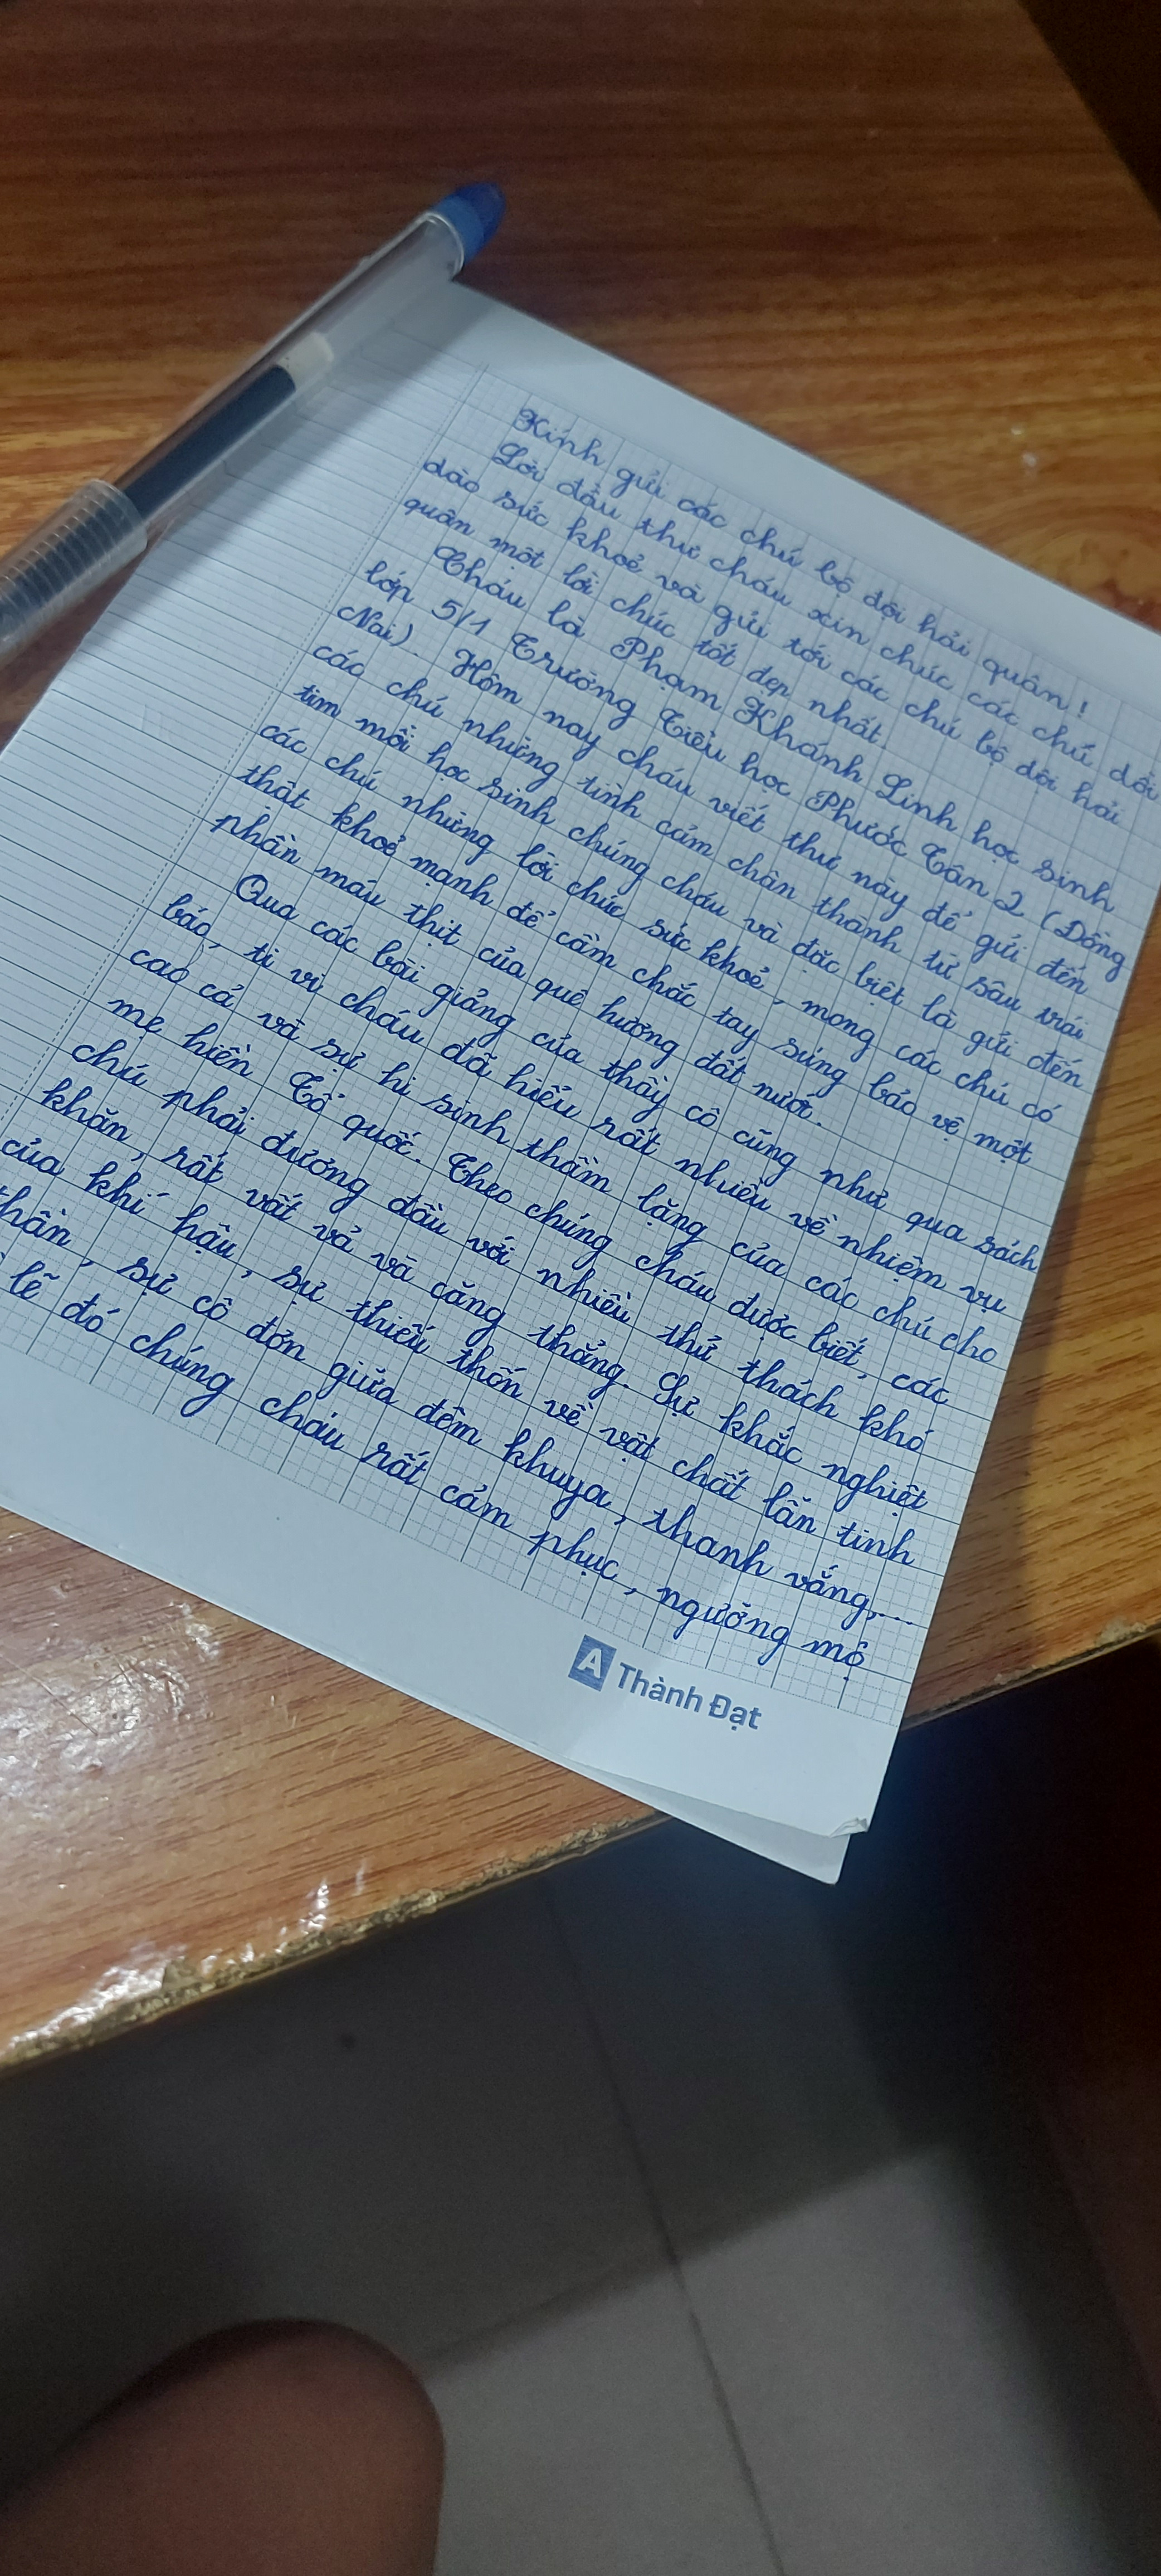 Kính gửi các chú bộ đội hải quân!
Lời đầu thư cháu xin chúc các chú dồi
dào sức khoẻ và gửi tới các chú bộ đội hải
quân một lời chúc tốt đẹp nhất.
Cháu là Phạm Khánh Linh học sinh
lớp 5/1 Trường Tiểu học Phước Tân 2 (Đồng
Nai). Hôm nay cháu viết thư này để gửi đến
các chú những tình cảm chân thành từ sâu trái
tim mỗi học sinh chúng cháu và đặc biệt là gửi đến
các chú những lời chúc sức khoẻ, mong các chú có
thật khoẻ mạnh để cầm chắc tay súng bảo vệ một
phần máu thịt của quê hương đất nước.
Qua các bài giảng của thầy cô cũng như qua sách
báo, ti vi cháu đã hiểu rất nhiều về nhiệm vụ
cao cả và sự hi sinh thầm lặng của các chú cho
mẹ hiền Tổ quốc. Theo chúng cháu được biết, các
chú phải đương đầu với nhiều thử thách khó
khăn, rất vất vả và căng thẳng. Sự khắc nghiệt
của khí hậu, sự thiếu thốn về vật chất lẫn tinh
thần, sự cô đơn giữa đêm khuya, thanh vắng,...
lẽ đó chúng cháu rất cảm phục, ngưỡng mộ
A Thành Đạt